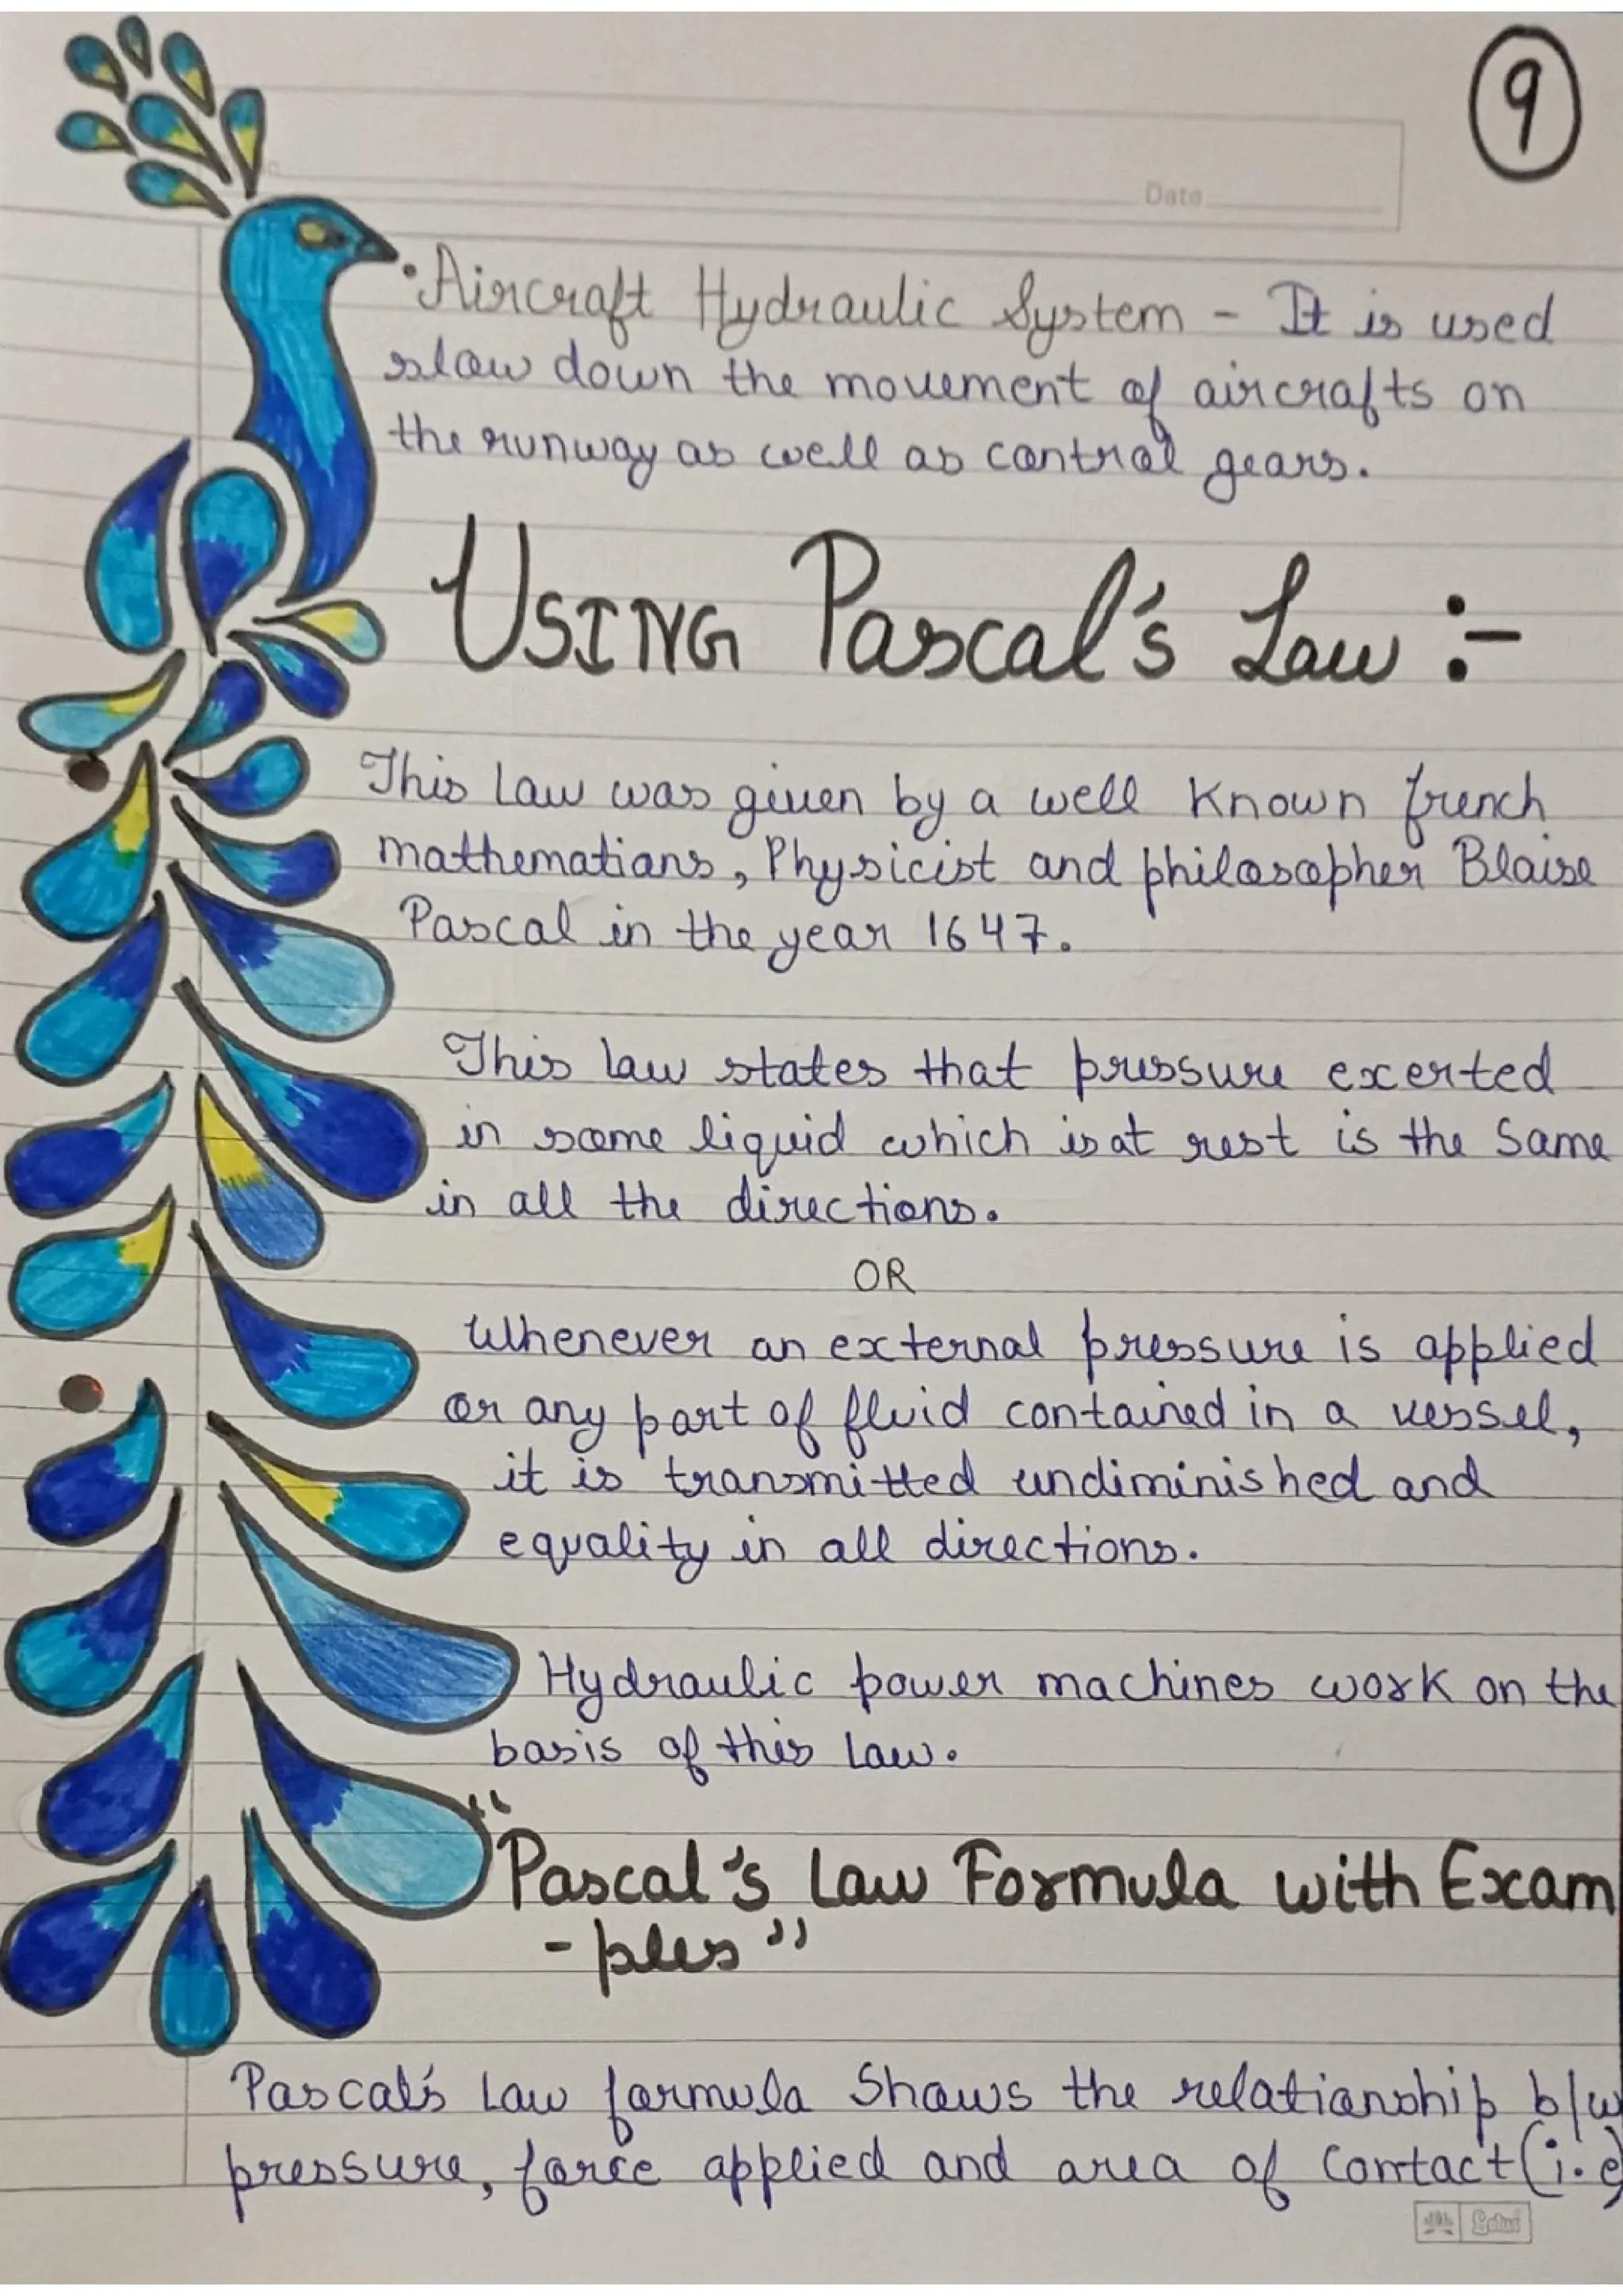 9
Date
• Aircraft Hydraulic System - It is used
slow down the movement of aircrafts on
the runway as well as control gears.
USING Pascal's Law :-
This Law was given by a well Known french
mathematians, Physicist and philosopher Blaise
Pascal in the year 1647.
This law states that pressure exerted
in some liquid which is at rest is the Same
in all the directions.
OR
Whenever an external pressure is applied
or any part of fluid contained in a vessel,
it is transmitted undiminished and
equality in all directions.
Hydraulic power machines work on the
basis of this Law.
"Pascal's Law Formula with Exam
-ples"
Pascal's Law formula Shows the relationship b/w
pressure, force applied and area of Contact (i.e)
Lotus